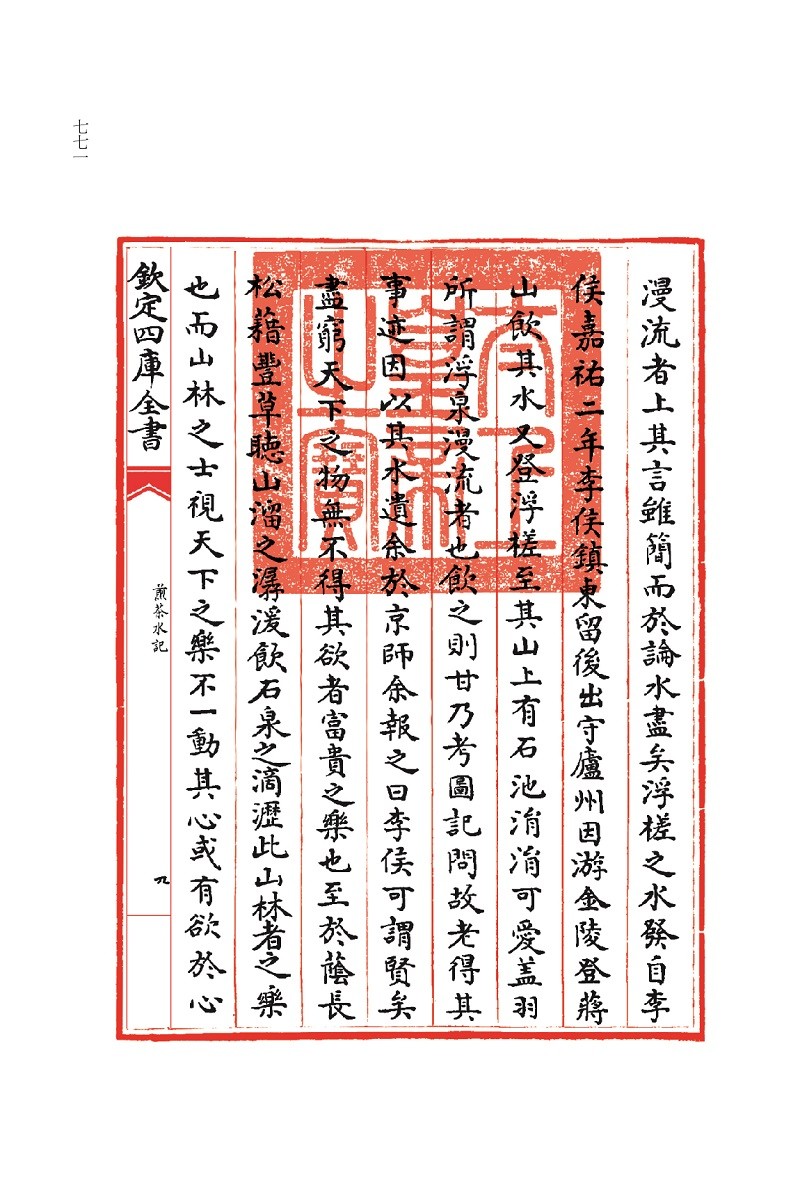 七七一
漫流者上其言雖簡而於論水盡矣浮槎之水發自李
侯嘉祐二年李侯鎮東留後出守廬州因游金陵登蔣
山飲其水又登浮槎至其山上有石池涓涓可愛蓋羽
所謂浮泉漫流者也飲之則甘乃考圖記問故老得其
事迹因以其水遺余於京師余報之曰李侯可謂賢矣
盡窮天下之物無不得其欲者富貴之樂也至於蔭長
松藉豐草聽山溜之潺湲飲石泉之滴瀝此山林者之樂
也而山林之士視天下之樂不一動其心或有欲於心
欽定四庫全書
煎茶水記
九